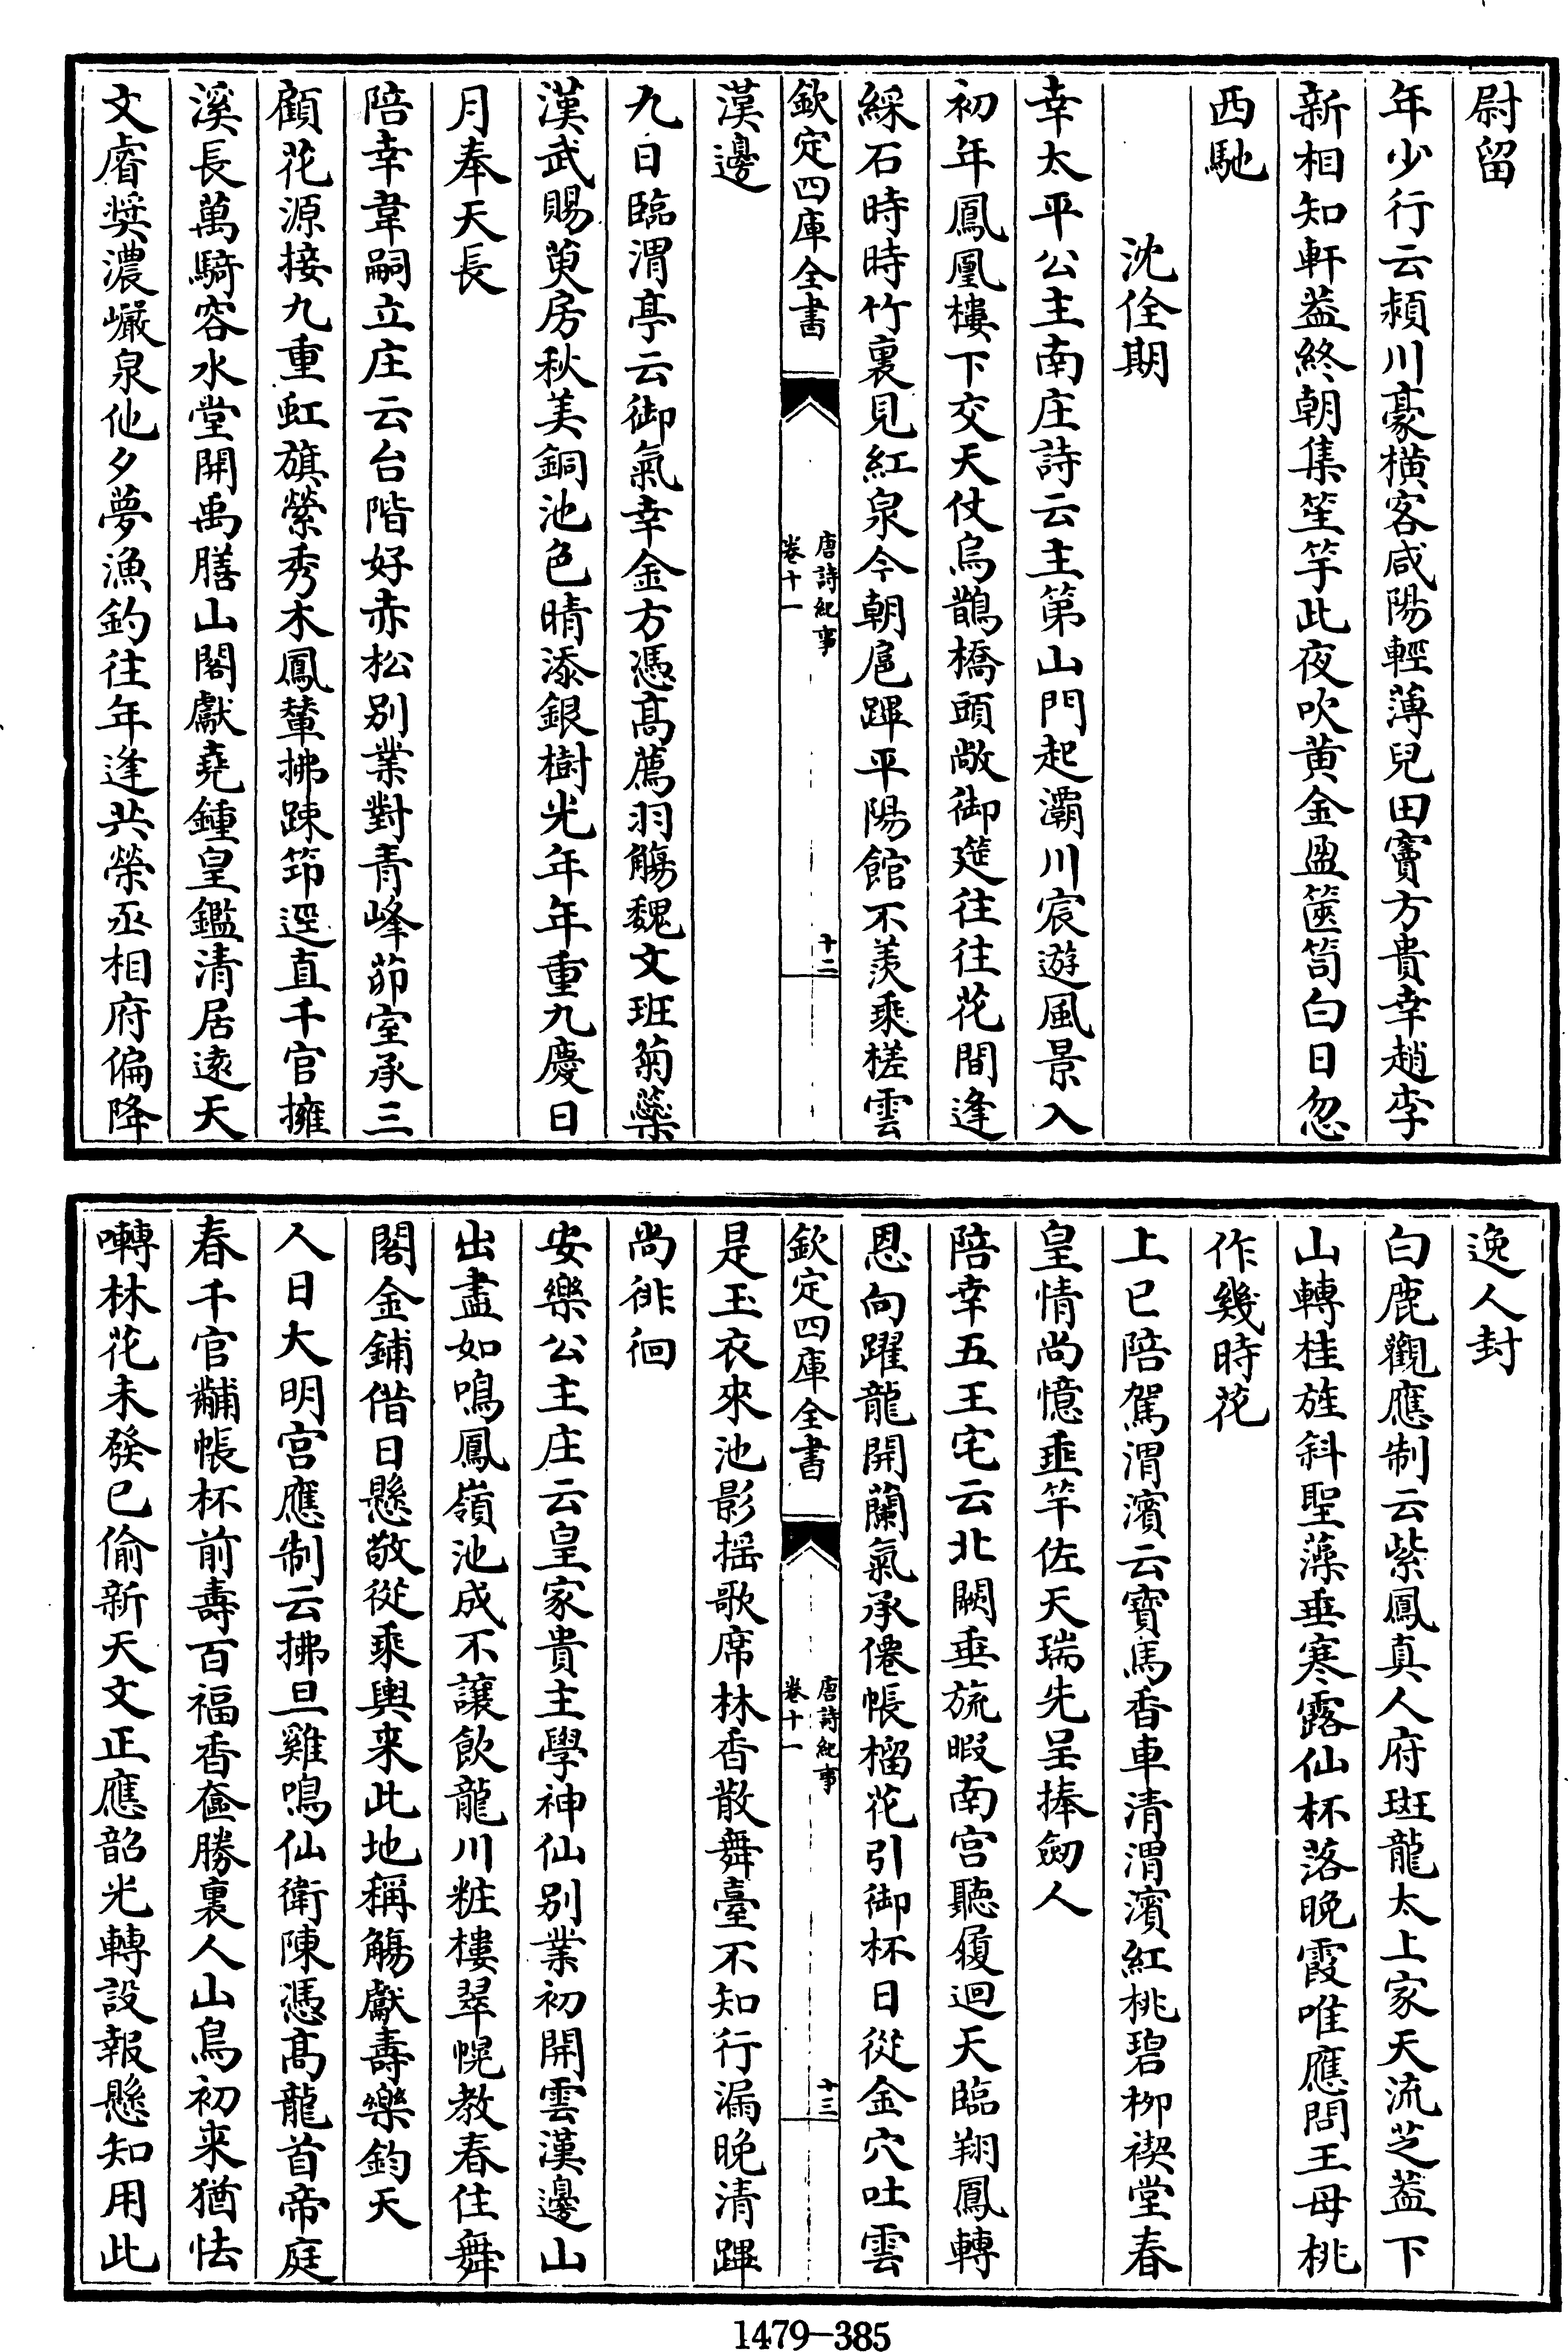 尉留
年少行云頴川豪橫客咸陽輕薄兒田竇方貴幸趙李
新相知軒葢終朝集笙竽此夜吹黄金盈篋笥白日忽
西馳
沈佺期
幸太平公主南庄詩云主第山門起灞川宸遊風景入
初年鳳凰樓下交天仗烏鵲橋頭敞御筵往往花間逢
綵石時時竹裏見紅泉今朝扈蹕平陽館不羨乘槎雲
欽定四庫全書
唐詩紀事
卷十一
十二
漢邊
九日臨渭亭云御氣幸金方憑髙薦羽觴魏文班菊蘂
漢武賜萸房秋美銅池色晴添銀樹光年年重九慶日
月奉天長
陪幸韋嗣立庄云台階好赤松别業對青峰茆室承三
顧花源接九重虹旗縈秀木鳳輦拂踈筇逕直千官擁
溪長萬騎容水堂開禹膳山閣獻堯鍾皇鑑清居逺天
文睿奬濃巗泉他夕夢漁釣往年逢共榮丞相府偏降
逸人封
白鹿觀應制云紫鳳真人府斑龍太上家天流芝葢下
山轉桂旌斜聖藻垂寒露仙杯落晚霞唯應問王母桃
作幾時花
上巳陪駕渭濱云寶馬香車清渭濱紅桃碧栁禊堂春
皇情尚憶垂竿佐天瑞先呈捧劒人
陪幸五王宅云北闕垂旒暇南宫聽履迴天臨翔鳳轉
恩向躍龍開蘭氣承僊帳榴花引御杯日從金穴吐雲
欽定四庫全書
唐詩紀事
卷十一
十三
是玉衣來池影揺歌席林香散舞臺不知行漏晚清蹕
尚徘徊
安樂公主庄云皇家貴主學神仙别業初開雲漢邊山
出盡如鳴鳳嶺池成不讓飲龍川粧樓翠幌教春住舞
閣金鋪借日懸敬從乘輿来此地稱觴獻壽樂鈞天
人日大明宫應制云拂旦雞鳴仙衛陳憑髙龍首帝庭
春千官黼帳杯前壽百福香奩勝裏人山鳥初来猶怯
囀林花未發已偷新天文正應韶光轉設報懸知用此
1479—385